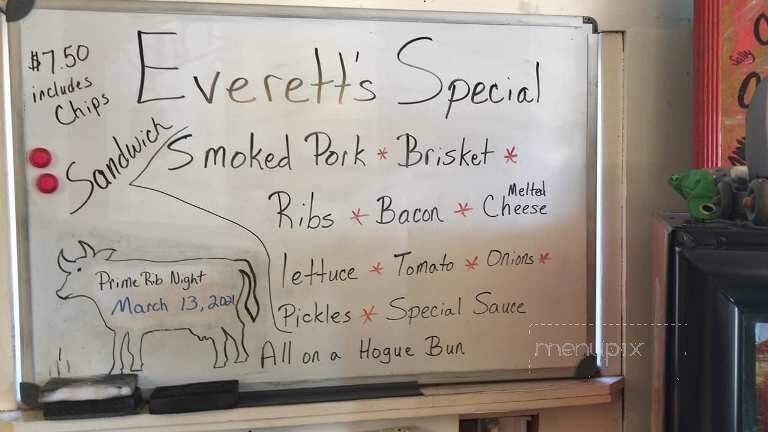 $7.50
includes
Chips
Everett's Special
Sandwich
Smoked Pork * Brisket *
Ribs * Bacon * Melted Cheese
lettuce * Tomato * Onions *
Pickles * Special Sauce
All on a Hogue Bun
Prime Rib Night
March 13, 2021
menupix